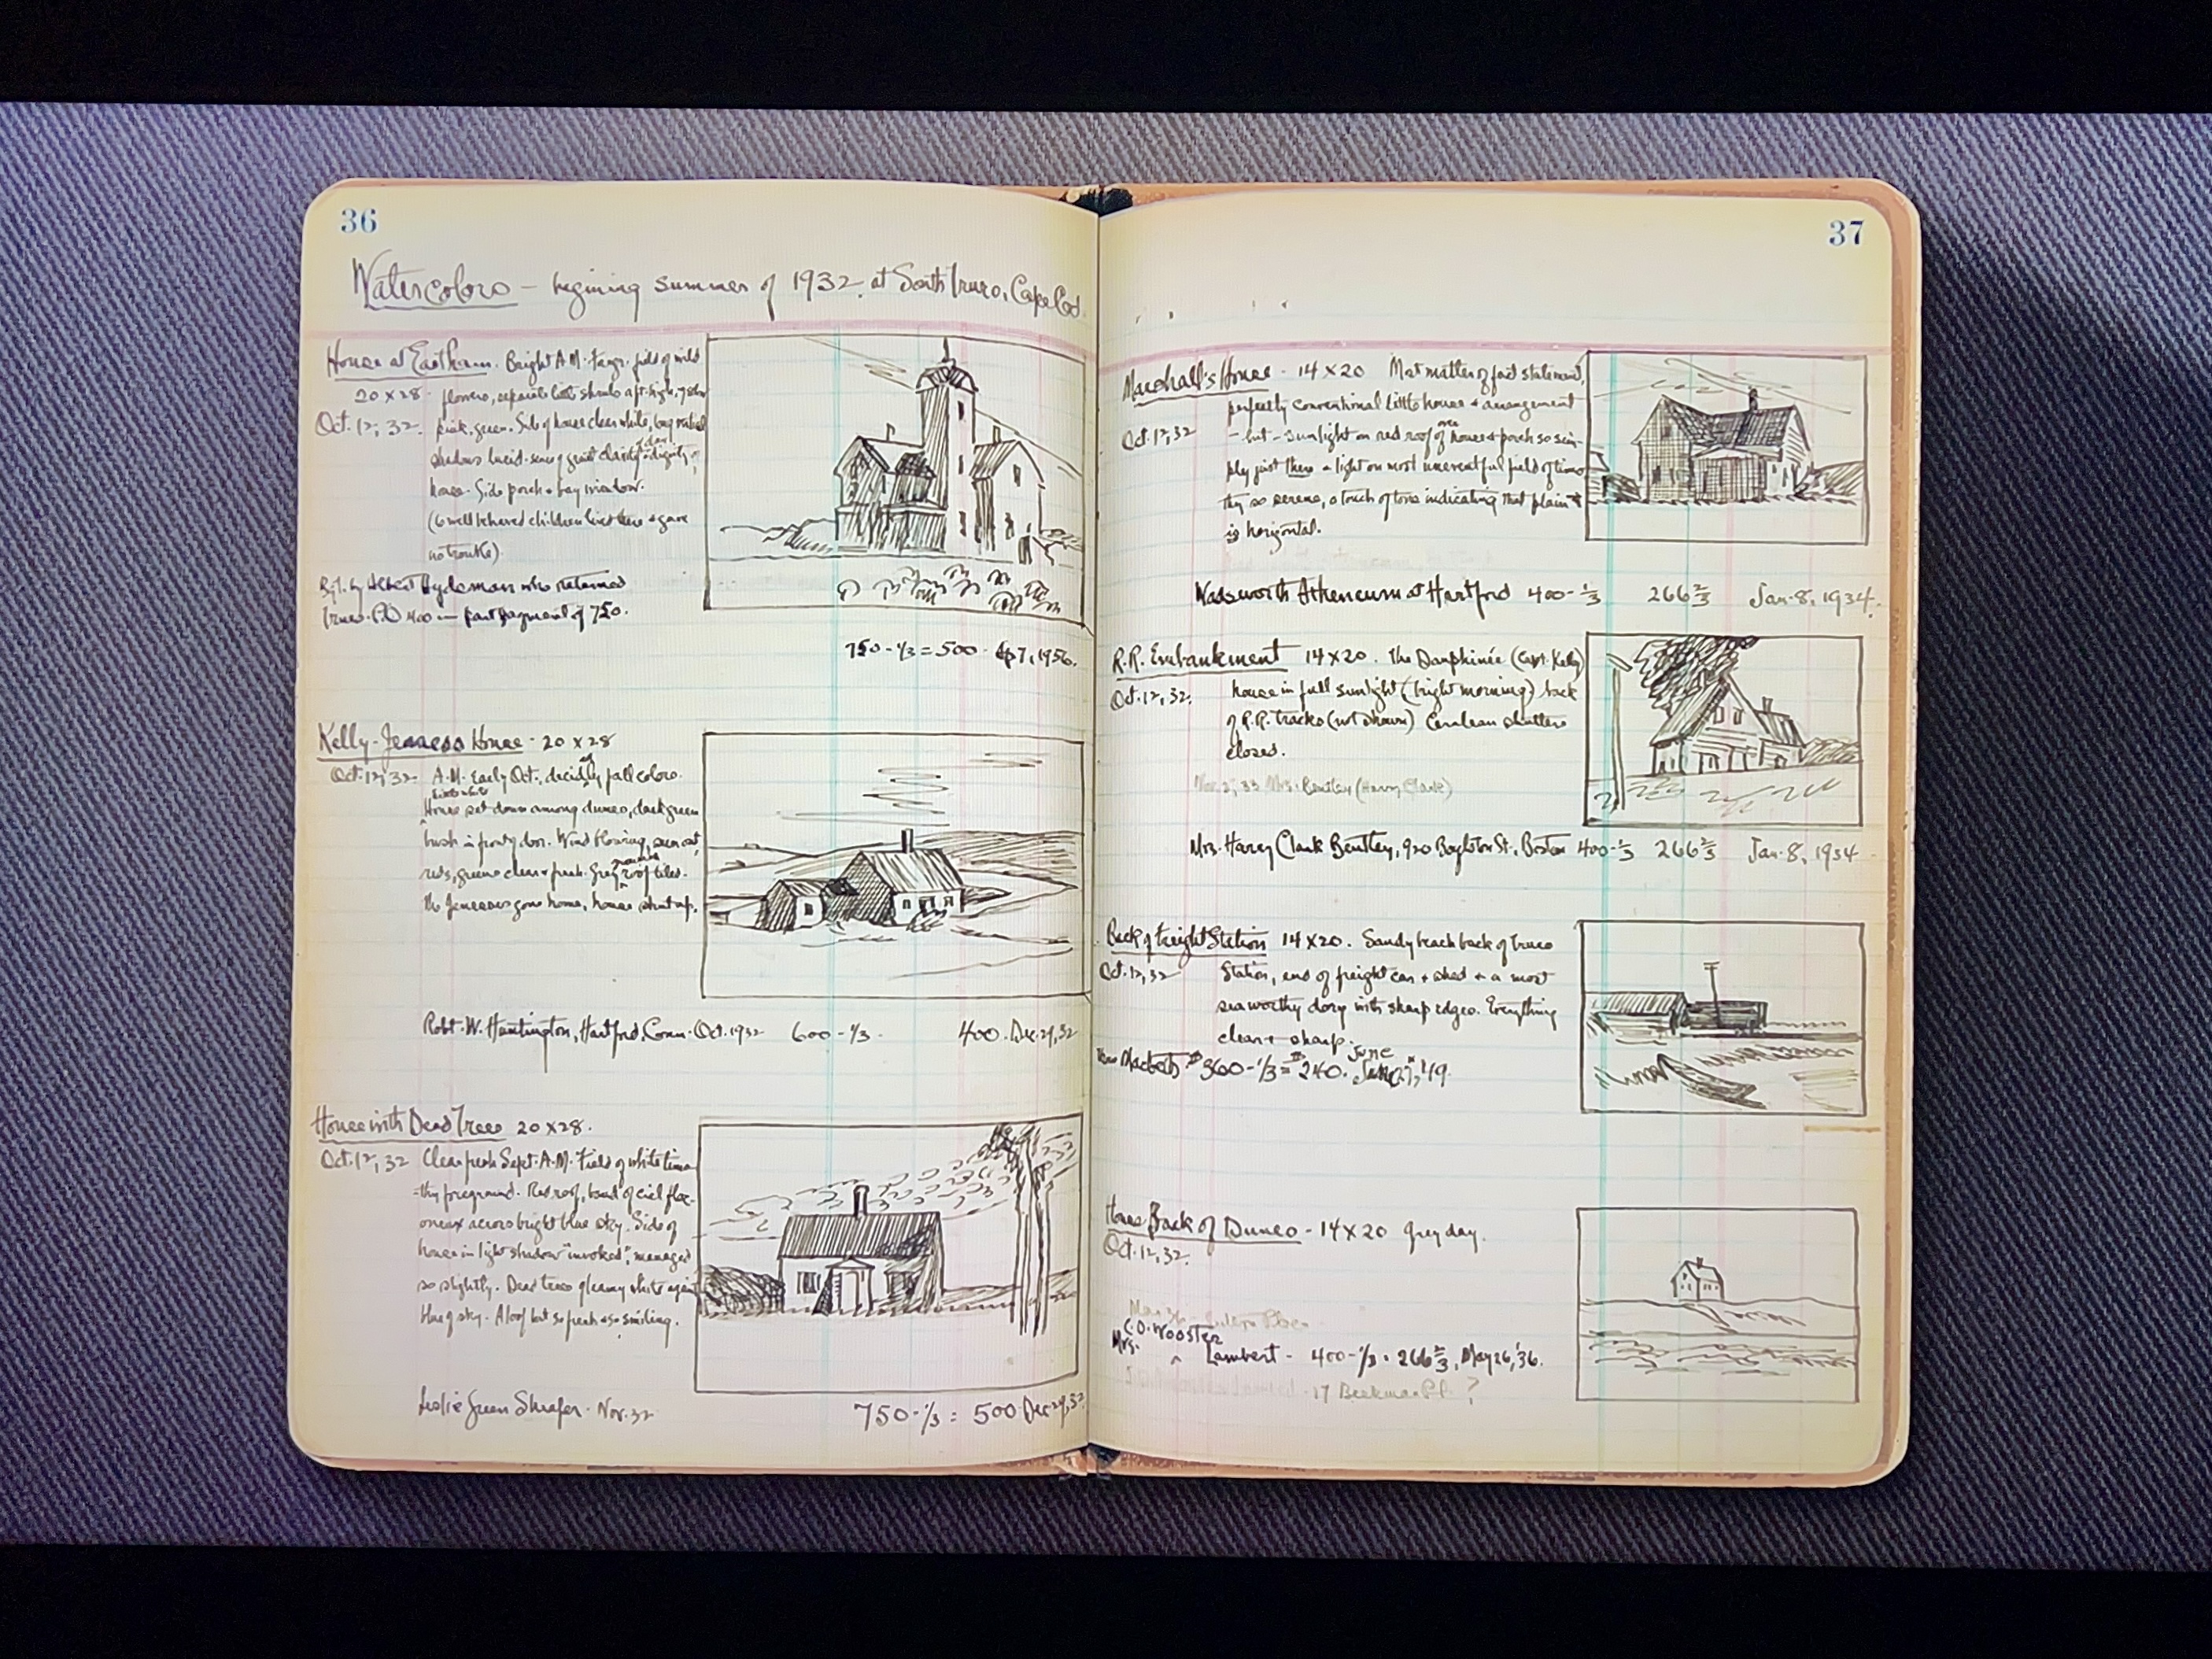 36
Watercolors - begining summer of 1932. at South Truro, Cape Cod.
House at Eastham. Bright A.M. field of wild
20 x 28 flowers, separate little shrubs a ft. high,
Oct. 12, 32. pink, green. Side of house clear white, long
shadows lucid. sense of quiet clarity + dignity of
house. Side porch + bay window.
(6 well behaved children lived there + gave
no trouble).
Bgt. by Albert Hydeman who returned
400 - part payment of 750.
750 - 1/3 = 500 - 7, 1956.
Kelly-Jenness House - 20 x 28
Oct. 12, 32 A.M. Early Oct., decidedly fall colors.
House set down among dunes, dark green
bush in front of door. Wind blowing, sun out,
reds, greens clear + fresh. Grey roof tiles.
The Jennesses gone home, house shut up.
Robt. W. Huntington, Hartford, Conn. Oct. 1932 600 - 1/3 - 400. Dec. 29, 32
House with Dead Trees 20 x 28.
Oct. 12, 32 Clear fresh Sept. A.M. Field of white timo-
-thy foreground. Red roof, band of ciel floc-
oneux across bright blue sky. Side of
house in light shadow "invoked", managed
so slightly. Dead trees gleamy white against
blue of sky. Aloof but so fresh + so smiling.
Leslie Green Sheafer - Nov. 32
750 - 1/3 = 500 Dec 29, 32
37
Marshall's House - 14 x 20 Most matter of fact statement,
perfectly conventional little house + arrangement
Oct. 12, 32 - but - sunlight on red roof of house + porch so sim-
ply just there + light on most uneventful field of timo
thy so serene, a touch of tone indicating that plain
is horizontal.
Wadsworth Atheneum at Hartford 400 - 1/3 266 2/3 Jan. 8, 1934.
R.R. Embankment 14 x 20. The Dauphinée (Capt. Kelly)
Oct. 12, 32. house in full sunlight (bright morning) back
of R.R. tracks (not shown) Cerulean shutters
closed.
Nov. 2, 33 Mrs. Bentley (Harry Clark)
Mrs. Harry Clark Bentley, 920 Boylston St., Boston 400 - 1/3 266 2/3 Jan. 8, 1934
Back of Freight Station 14 x 20. Sandy beach back of Truro
Oct. 12, 32 Station, end of freight car + shed + a most
seaworthy dory with sharp edges. Everything
clear + sharp.
Macbeth $360 - 1/3 = 240. June 27, '49.
House Back of Dunes - 14 x 20 Grey day.
Oct. 12, 32.
C.O. Wooster
Mrs. ^ Lambert - 400 - 1/3 = 266 2/3, May 26, '36.
17 Beekman Pl. ?